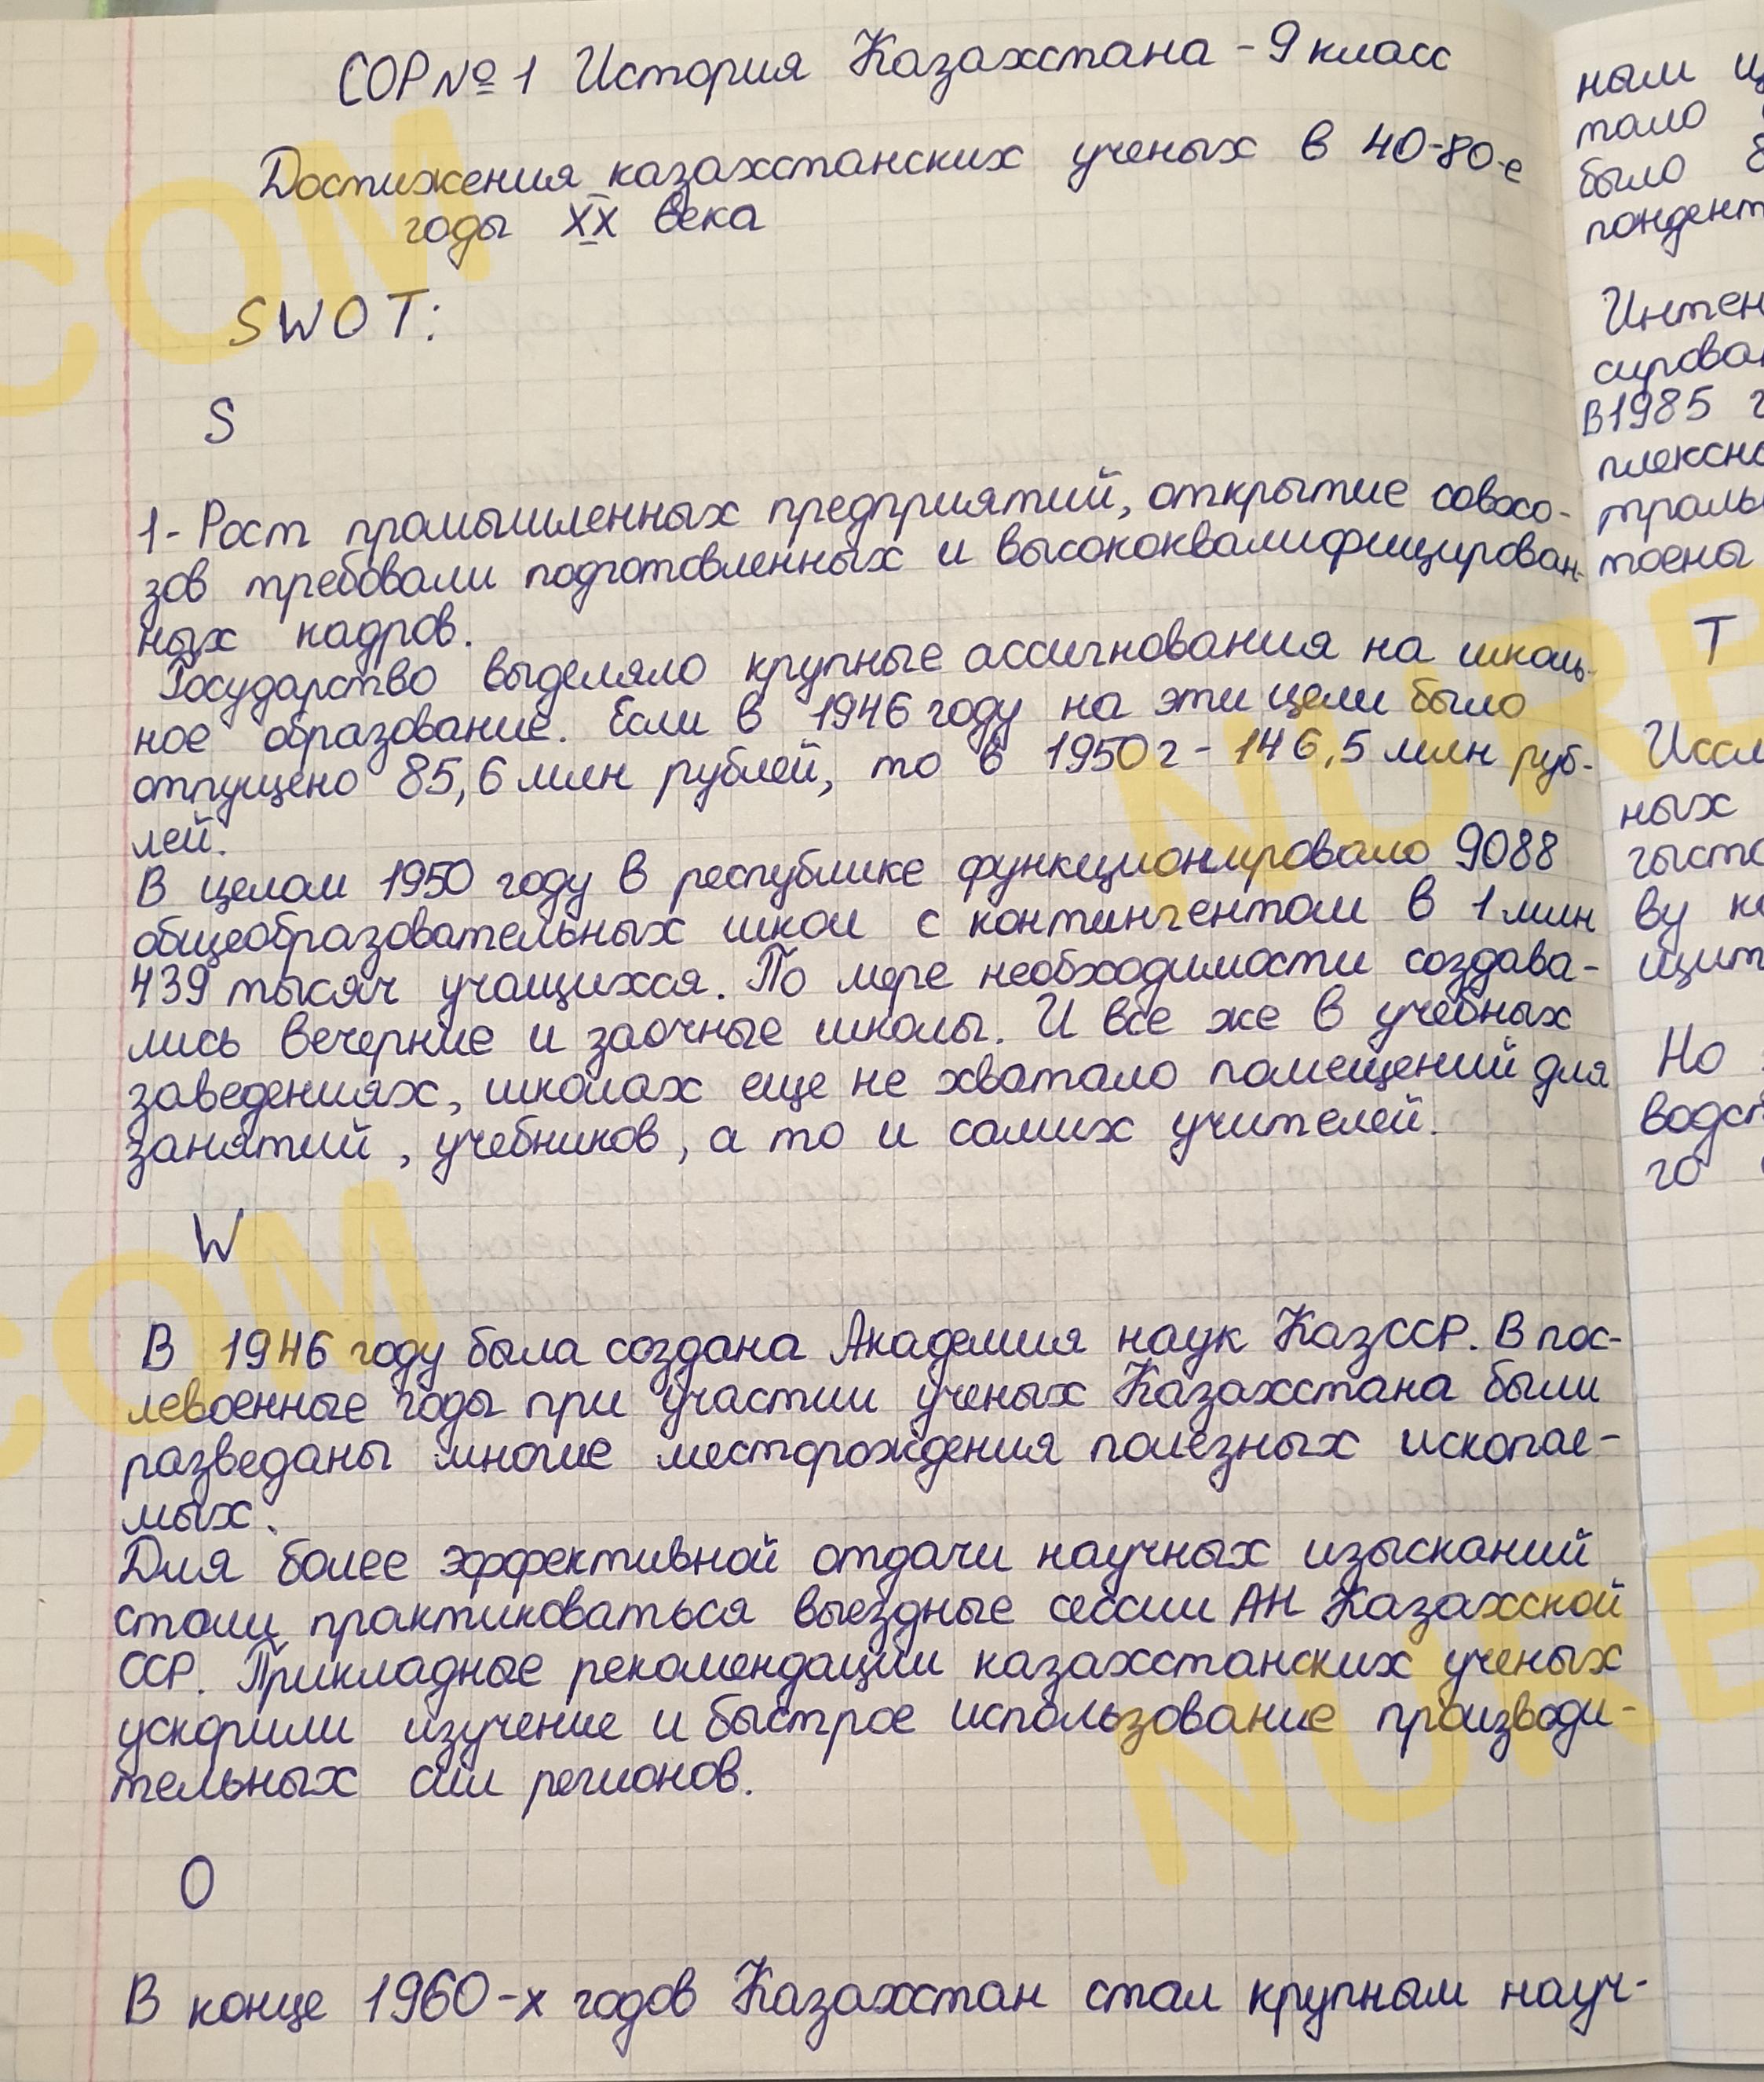 СОР№1 История Казахстана - 9 класс
Достижения казахстанских ученых в 40-80-е
годы XX века
SWOT:
S
1- Рост промышленных предприятий, открытие совосо-
зов требовали подготовленных и высококвалифицирован-
ных кадров.
Государство выделяло крупные ассигнования на школь-
ное образование. Если в 1946 году на эти цели было
отпущено 85,6 млн рублей, то в 1950г - 146,5 млн руб-
лей.
В целом 1950 году в республике функционировало 9088
общеобразовательных школ с контингентом в 1 млн
439 тысяч учащихся. По мере необходимости создава-
лись вечерние и заочные школы. И все же в учебных
заведениях, школах еще не хватало помещений для
занятий, учебников, а то и самих учителей.
W
В 1946 году была создана Академия наук КазССР. В пос-
левоенные годы при участии ученых Казахстана были
разведаны многие месторождения полезных ископае-
мых.
Для более эффективной отдачи научных изысканий
стали практиковаться выездные сессии АН Казахской
ССР. Прикладные рекомендации казахстанских ученых
ускорили изучение и быстрое использование производи-
тельных сил регионов.
O
В конце 1960-х годов Казахстан стал крупным науч-
ным
тало
было
пондент
Интен
сирова
В 1985 г
плексно
траль
тоены
T
Иссл
ных
гыста
ву к
щит
Но
водст
го
COM
NURE
COM
NURE